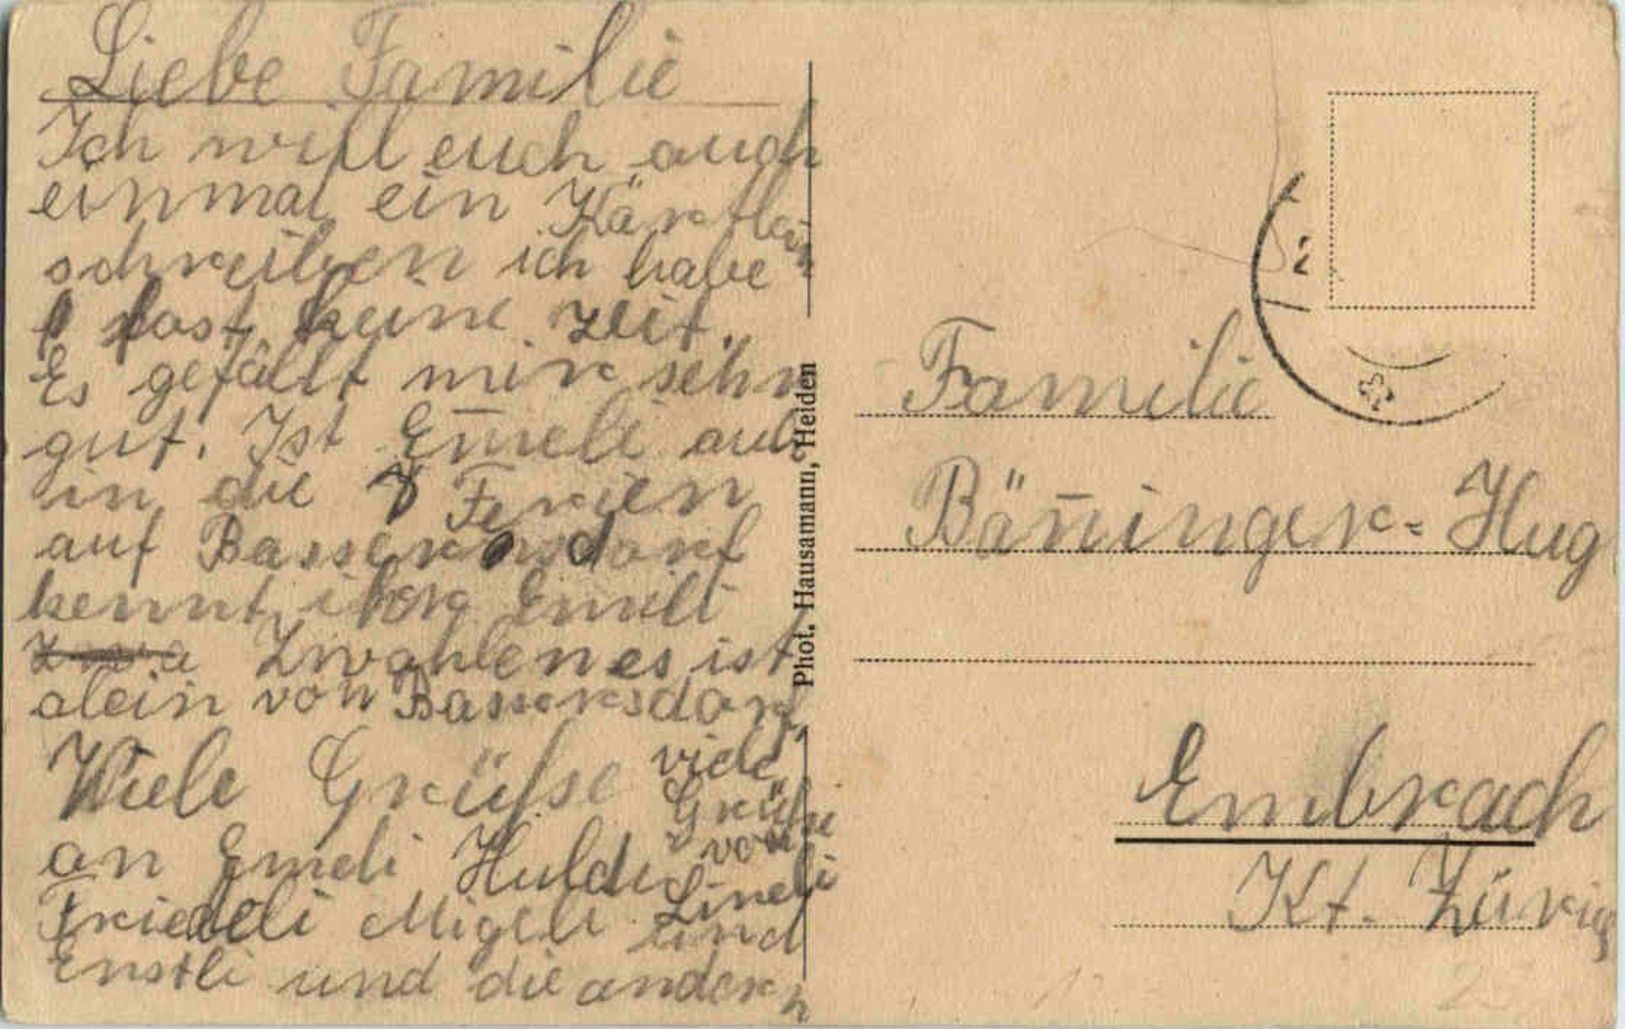 Liebe Familie
Ich will euch auch
einmal ein Kärtlein
schreiben ich habe
fast keine Zeit.
Es gefällt mir sehr
gut. Ist Em̄eli auh
in die Ferien
auf Bassersdorf
kennt ihr Emili
Zwahlen es ist
alein von Bassersdorf,
Viele Grüsse
an Emeli Huldi
Friedeli Migeli und
Ernstli und die andern
viele
Grüsse
von
Lineli
Phot. Hausamann, Heiden
Familie
Bän̄inger-Hug
Embrach
Kt. Zürich